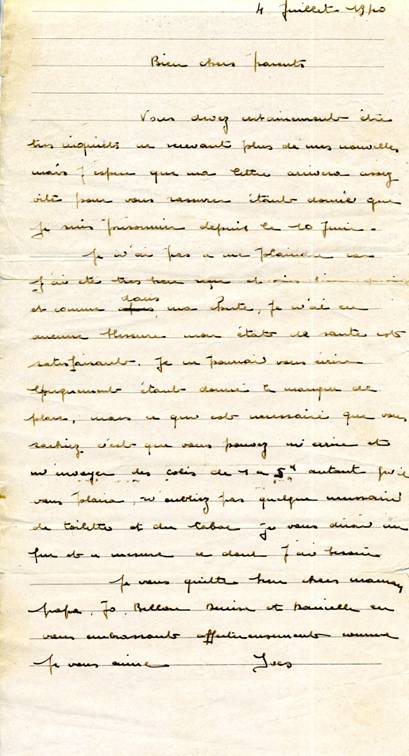 4 Juillet 1940
Bien chers parents
Vous devez certainement être
très inquiets ne recevant plus de mes nouvelles
mais j'espère que ma lettre arrivera assez
vite pour vous rassurer étant donné que
je suis prisonnier depuis le 10 Juin -
Je n'ai pas a me plaindre car
j'ai été très bien et suis
et comme dans ma chute, je n'ai eu
aucune blessure mon état de santé est
satisfaisant. Je ne pourrai vous écrire
longuement étant donné le manque de
place, mais ce qui est nécessaire que vous
sachiez c'est que vous pouvez m'écrire et
m'envoyer des colis de 1 a 5 K autant qu'il
vous plaira, n'oubliez pas quelque nécessaire
de toilette et du tabac je vous dirai au
fur et a mesure ce dont j'ai besoin
Je vous quitte bien chers maman,
papa, Jo, Denise et Danielle en
vous embrassant affectueusement comme
je vous aime Yves